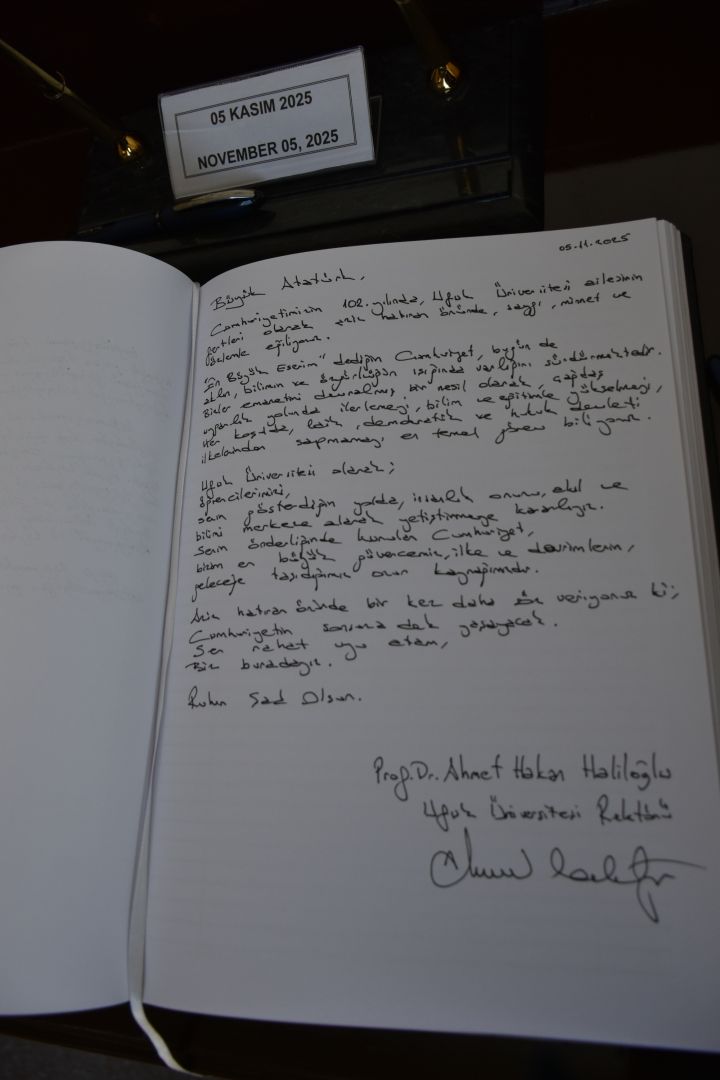 05 KASIM 2025
NOVEMBER 05, 2025
05.11.2025
Büyük Atatürk,
Cumhuriyetimizin 102. yılında, Ufuk Üniversitesi ailesinin
fertleri olarak aziz hatıran önünde, saygı, minnet ve
özlemle eğiliyoruz.
"En Büyük Eserim" dediğin Cumhuriyet, bugün de
aklın, bilimin ve özgürlüğün ışığında varlığını sürdürmektedir.
Bizler emanetini devralmış bir nesil olarak, çağdaş
uygarlık yolunda ilerlemeyi, bilim ve eğitimle yükselmeyi,
Her koşulda, laik, demokratik ve hukuk devleti
ilkelerinden sapmamayı en temel görev biliyoruz.
Ufuk Üniversitesi olarak;
öğrencilerimizi,
senin gösterdiğin yolda, insanlık onuru, akıl ve
bilimi merkeze alarak yetiştirmeye kararlıyız.
Senin önderliğinde kurulan Cumhuriyet,
bizim en büyük güvencemiz, ilke ve devrimlerin,
geleceğe taşıdığımız onur kaynağımızdır.
Aziz hatıran önünde bir kez daha söz veriyoruz ki;
Cumhuriyetin sonsuza dek yaşayacak.
Sen rahat uyu atam,
Biz buradayız.
Ruhun Şad Olsun.
Prof. Dr. Ahmet Hakan Haliloğlu
Ufuk Üniversitesi Rektörü